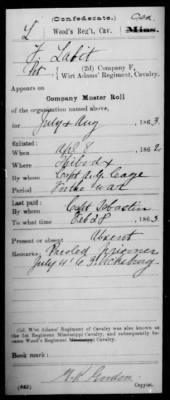 (Confederate.)
L Wood's Reg't, Cav. Con. Miss.
F. Labit
Pvt, (2d) Company F,
Wirt Adams' Regiment, Cavalry.
Appears on
Company Muster Roll
of the organization named above,
for July & Aug, 1863.
Enlisted:
When Apr 8, 1862.
Where
By whom Capt A.G. Cage
Period For the war
Last paid:
By whom Capt
To what time Feb 28, 1863.
Present or absent Absent
Remarks: Paroled prisoner
July 4' 63 Vicksburg
Col. Wirt Adams' Regiment of Cavalry was also known as
the 1st Regiment Mississippi Cavalry, and subsequently be-
came Wood's Regiment Mississippi Cavalry.
Book mark:
(642) Gordon
Copyist.